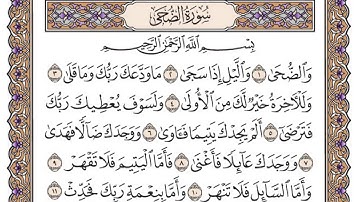 سُورَةُ الضُّحَىٰ
بِسْمِ اللَّهِ الرَّحْمَٰنِ الرَّحِيمِ
وَالضُّحَىٰ ١ وَاللَّيْلِ إِذَا سَجَىٰ ٢ مَا وَدَّعَكَ رَبُّكَ وَمَا قَلَىٰ ٣
وَلَلْآخِرَةُ خَيْرٌ لَّكَ مِنَ الْأُولَىٰ ٤ وَلَسَوْفَ يُعْطِيكَ رَبُّكَ
فَتَرْضَىٰ ٥ أَلَمْ يَجِدْكَ يَتِيمًا فَآوَىٰ ٦ وَوَجَدَكَ ضَالًّا فَهَدَىٰ
٧ وَوَجَدَكَ عَائِلًا فَأَغْنَىٰ ٨ فَأَمَّا الْيَتِيمَ فَلَا تَقْهَرْ ٩
وَأَمَّا السَّائِلَ فَلَا تَنْهَرْ ١٠ وَأَمَّا بِنِعْمَةِ رَبِّكَ فَحَدِّثْ ١١